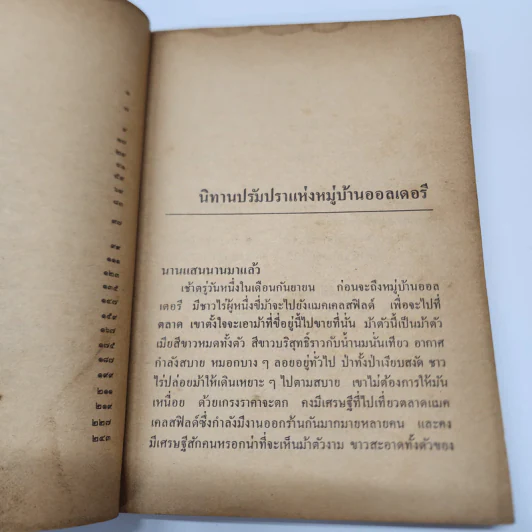 ๑๑๑
๑๒๓
๑๓๕
๑๔๘
๑๕๙
๑๖๘
๑๗๕
๑๘๘
๑๙๙
๒๑๑
๒๑๙
๒๒๘
๒๔๓
นิทานปรัมปราแห่งหมู่บ้านออลเดอรี
นานแสนนานมาแล้ว
เช้าตรู่วันหนึ่งในเดือนกันยายน ก่อนจะถึงหมู่บ้านออล
เดอรี มีชาวไร่ผู้หนึ่งขี่ม้าจะไปยังแมคเคลสฟิลด์ เพื่อจะไปที่
ตลาด เขาตั้งใจจะเอาม้าที่ขี่อยู่นี้ไปขายที่นั่น ม้าตัวนี้เป็นม้าตัว
เมียสีขาวหมดทั้งตัว สีขาวบริสุทธิ์ราวกับน้ำนมนั่นเทียว อากาศ
กำลังสบาย หมอกบาง ๆ ลอยอยู่ทั่วไป ป่าทั้งป่าเงียบสงัด ชาว
ไร่ปล่อยม้าให้เดินเหยาะ ๆ ไปตามสบาย เขาไม่ต้องการให้มัน
เหนื่อย ด้วยเกรงราคาจะตก คงมีเศรษฐีที่ไปเที่ยวตลาดแมค
เคลสฟิลด์ซึ่งกำลังมีงานออกร้านกันมากมายหลายคน และคง
มีเศรษฐีสักคนหรอกน่าที่จะเห็นม้าตัวงาม ขาวสะอาดทั้งตัวของ